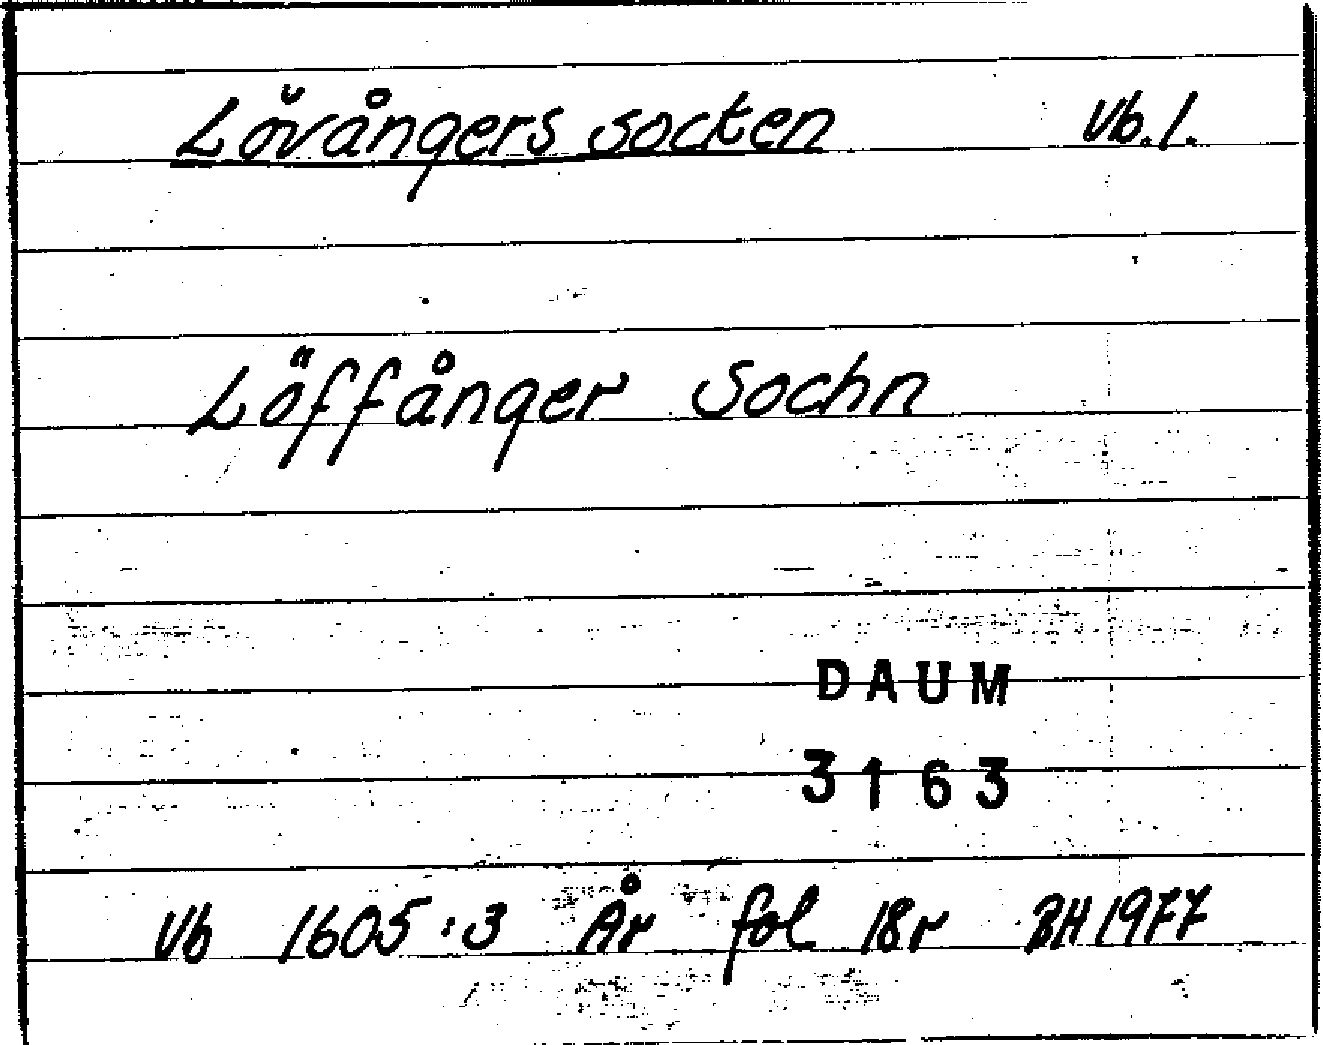 Lövångers socken Vb.l.
Löffånger Sochn
DAUM
3163
Vb 1605:3 År fol 18r BH 1977